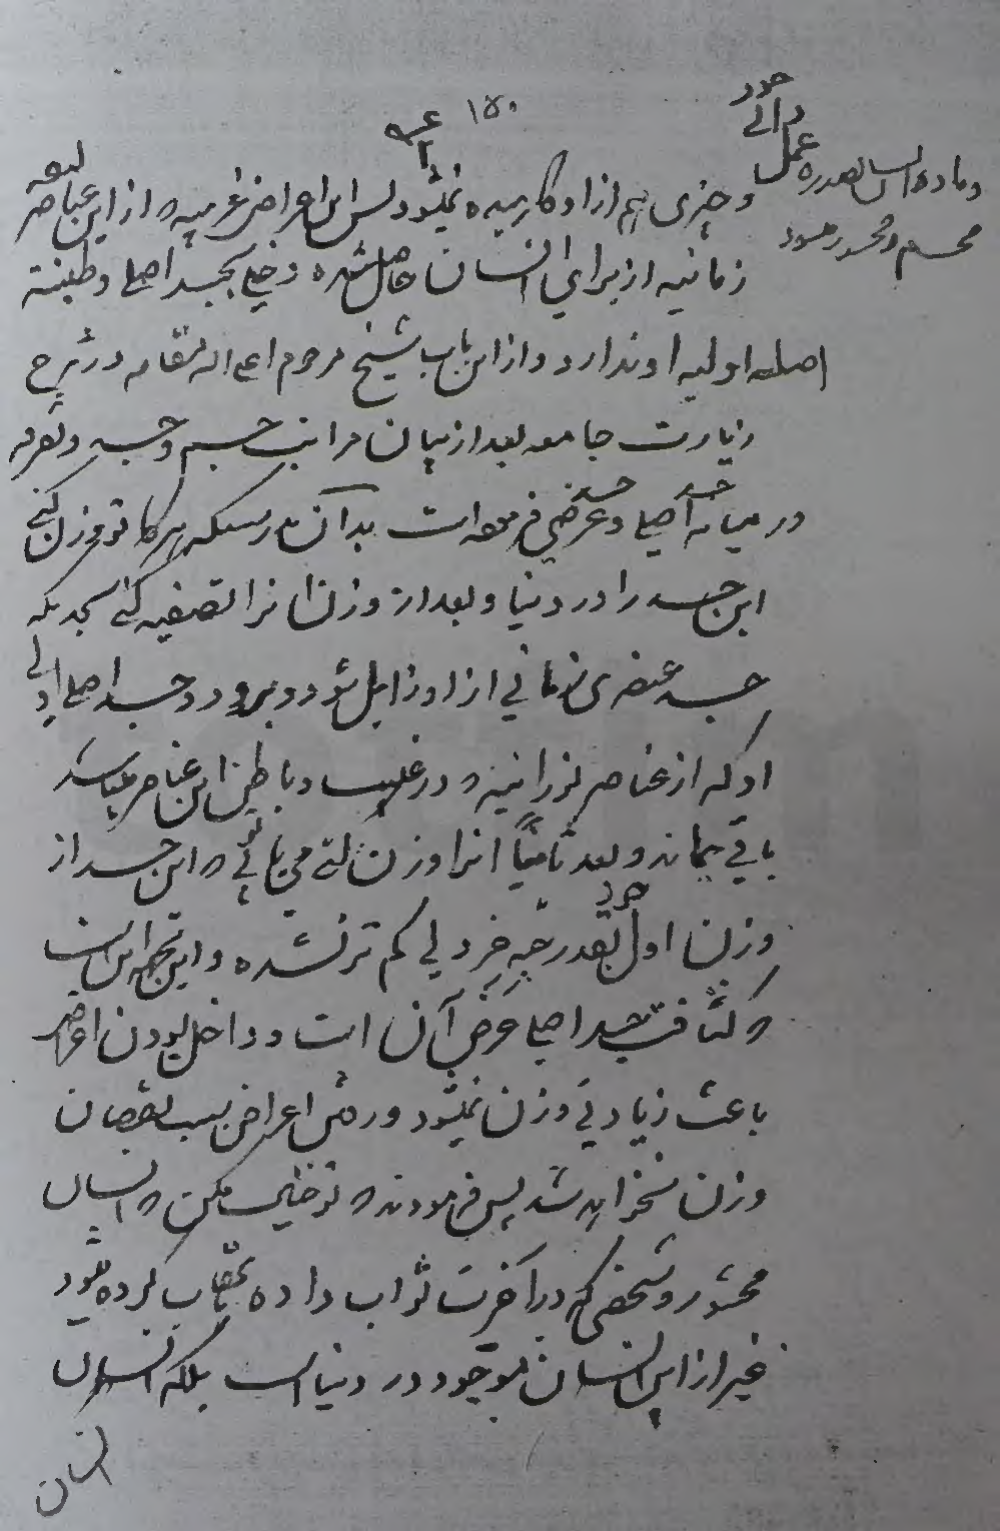 ۱۵۰
و چیزی هم از او کاربیده نمیشود پس این اعراض غریبه که از این عناصر
زمانیه از برای انسان حاصل شده دخلی بجسد اصلی و طینة
اصلیه اولیه او ندارد و از این باب شیخ مرحوم اعلی اله مقامه در شرح
زیارت جامعه بعد از بیان مراتب جسم و جسد و تفرقه
در میانه جسد اصلی و جسد عرضی فرموده است بدان بدرستیکه هرگاه تو وزن کنی
این جسد را در دنیا و بعد از وزن انرا تصفیه کنی بحدیکه
جسد عنصری زمانی از او زایل شود و برود و جسد اصلی اولی
او که از عناصر نورانیه که در غیب و باطن این عناصر میباشد
باقی بماند و بعد ثانیاً انرا وزن کنی می یابی تو که این جسد از
وزن اول بقدر حبه خردلی کم تر نشده و این بجهة این است
که کثافت جسد اصلی عرض آن است و داخل بودن اعراض
باعث زیادتی وزن نمیشود و رفتن اعراض سبب نقصان
وزن نخواهد شد پس فرمودند که تو خیال مکن که انسان
محشور و شخصی که در آخرت ثواب داده یا عقاب کرده میشود
غیر از این انسان موجود در دنیا است بلکه انسان
انسان